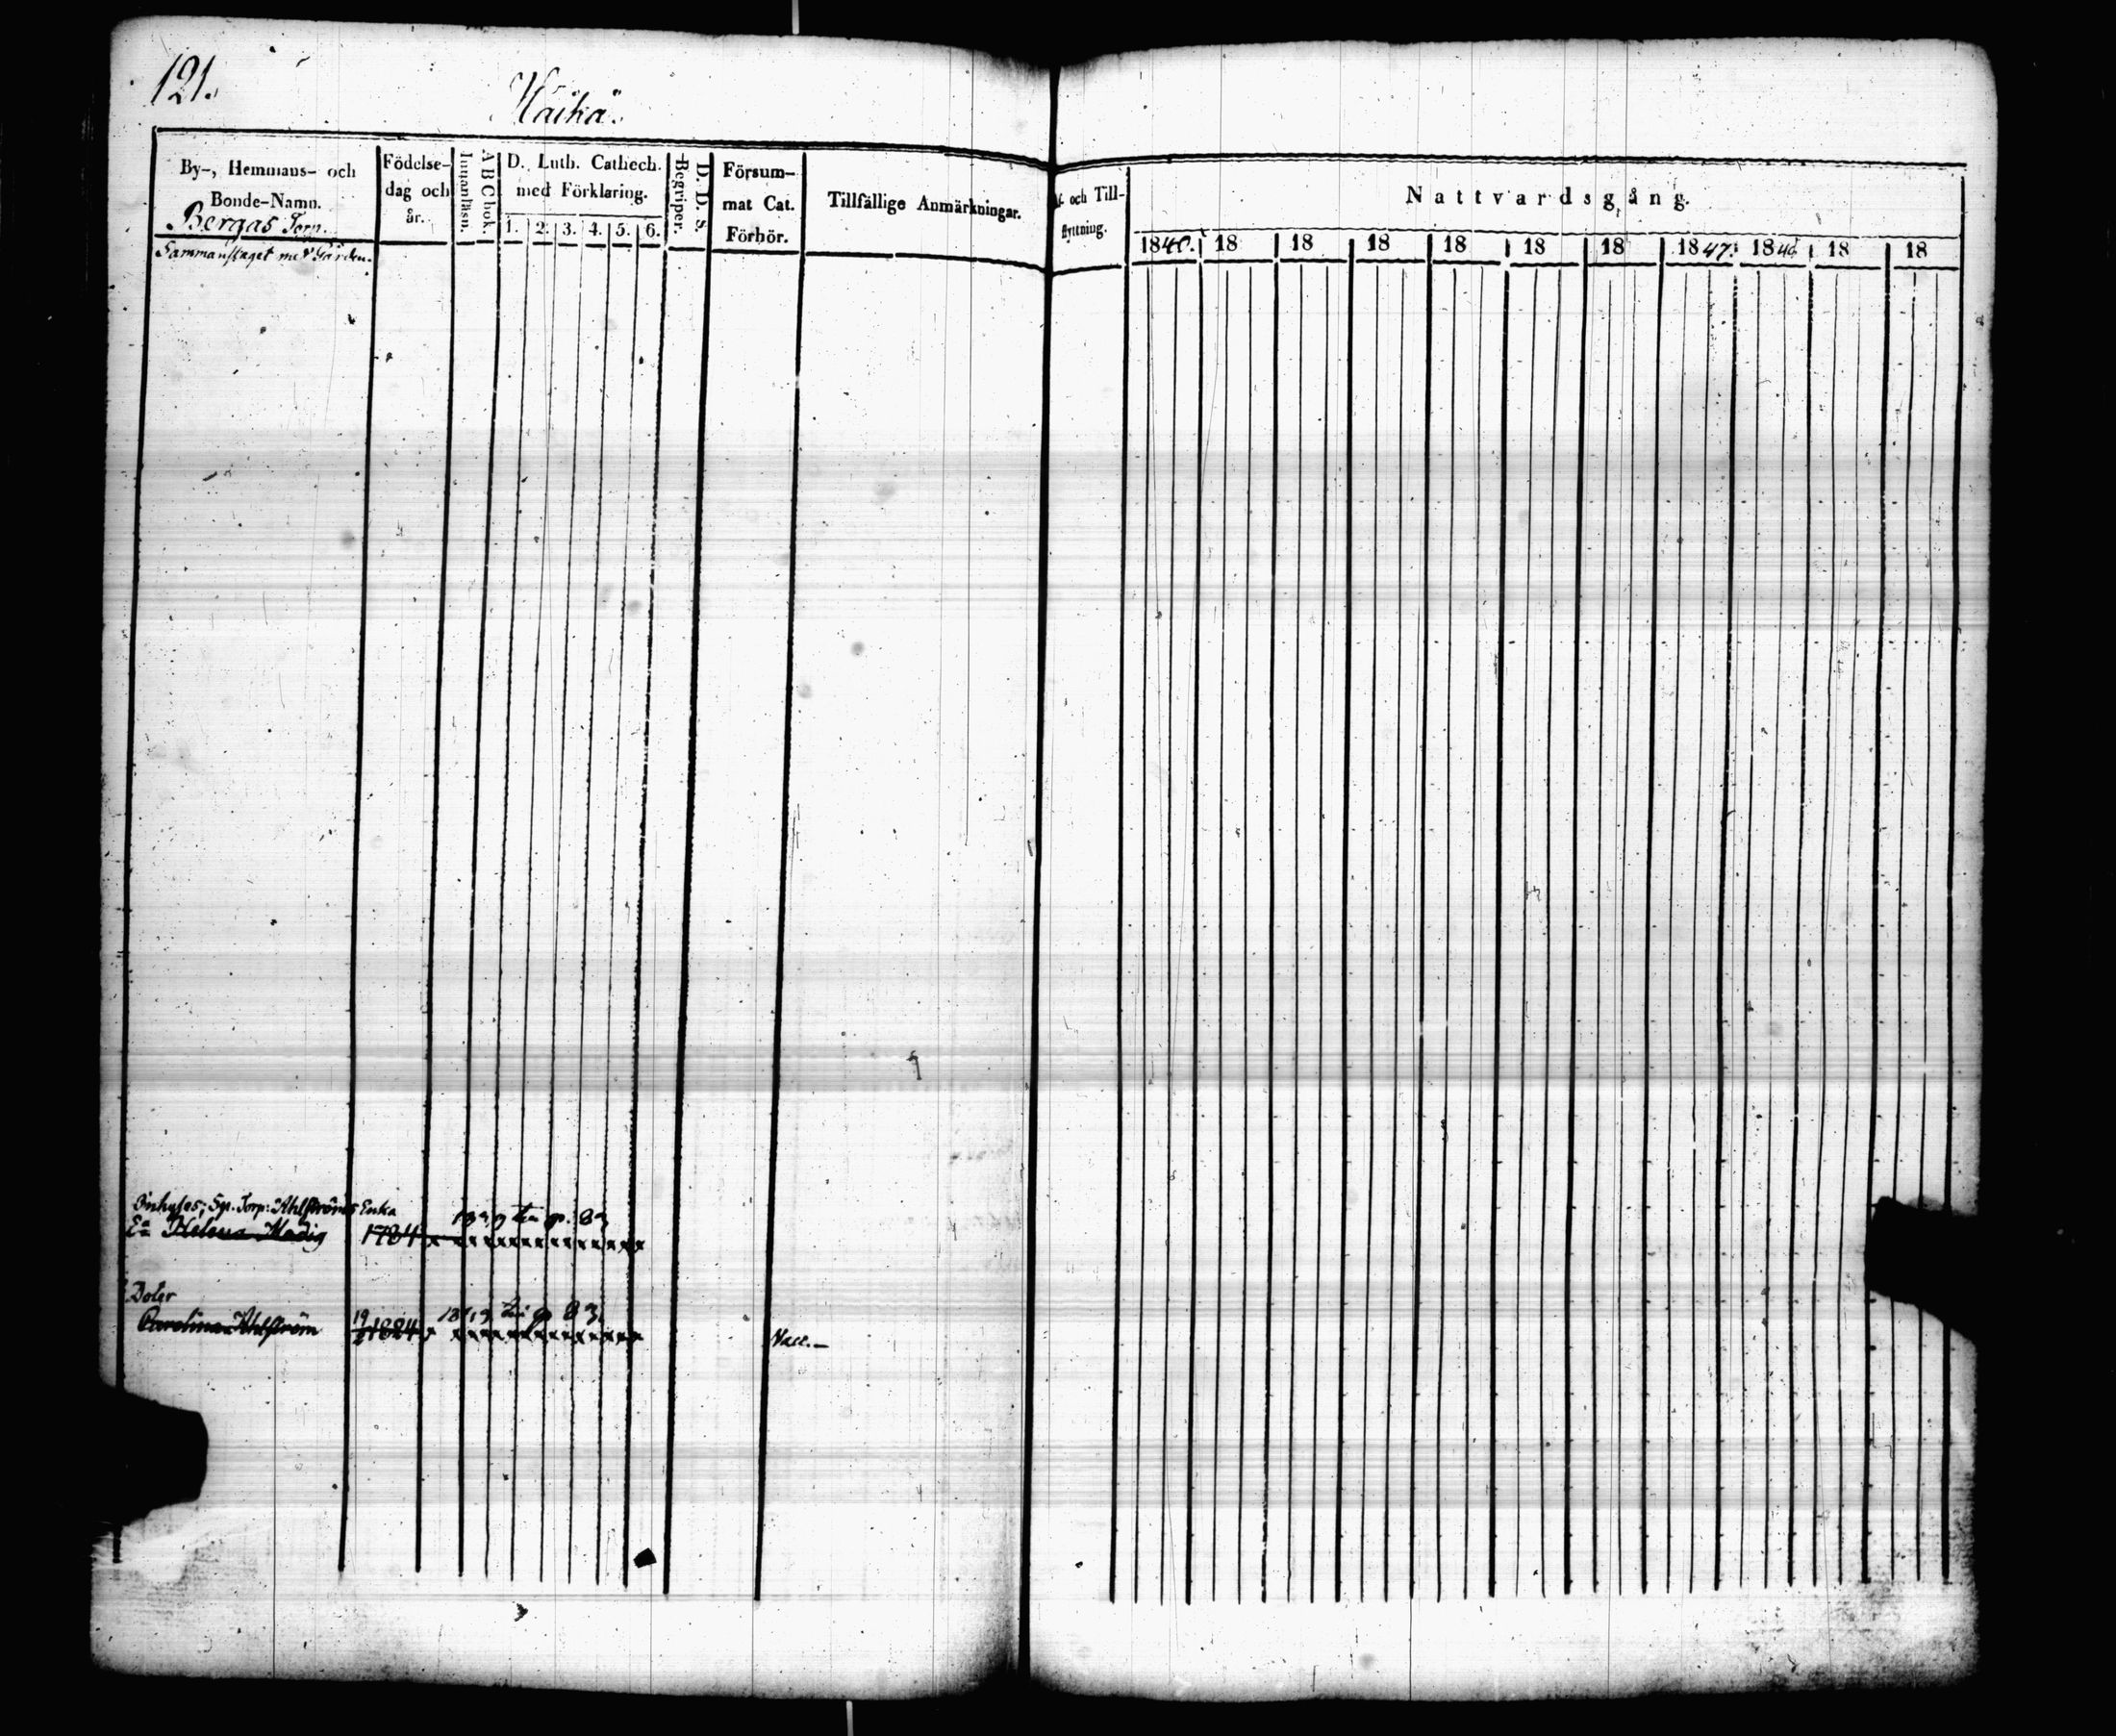 121.
Näikä.
By-, Hemmans- och Bonde-Namn.
Bergas Torp.
Födelse-dag och år.
Innanläsn.
A B C bok.
D. Luth. Cathech. med Förklaring.
1. 2. 3. 4. 5. 6.
Begriper.
D. D. s.
Försum-mat Cat. Förhör.
Tillfällige Anmärkningar.
och Till-flyttning.
Nattvardsgång.
1840. 18 18 18 18 18 18 1847. 18 18 18
Sammanslaget med Gården.
Inhyses; Sp. Torp: Ahlströms Enka
Helena Madig 1784
Doter
Carolina Ahlström 19 1824
Vacc.